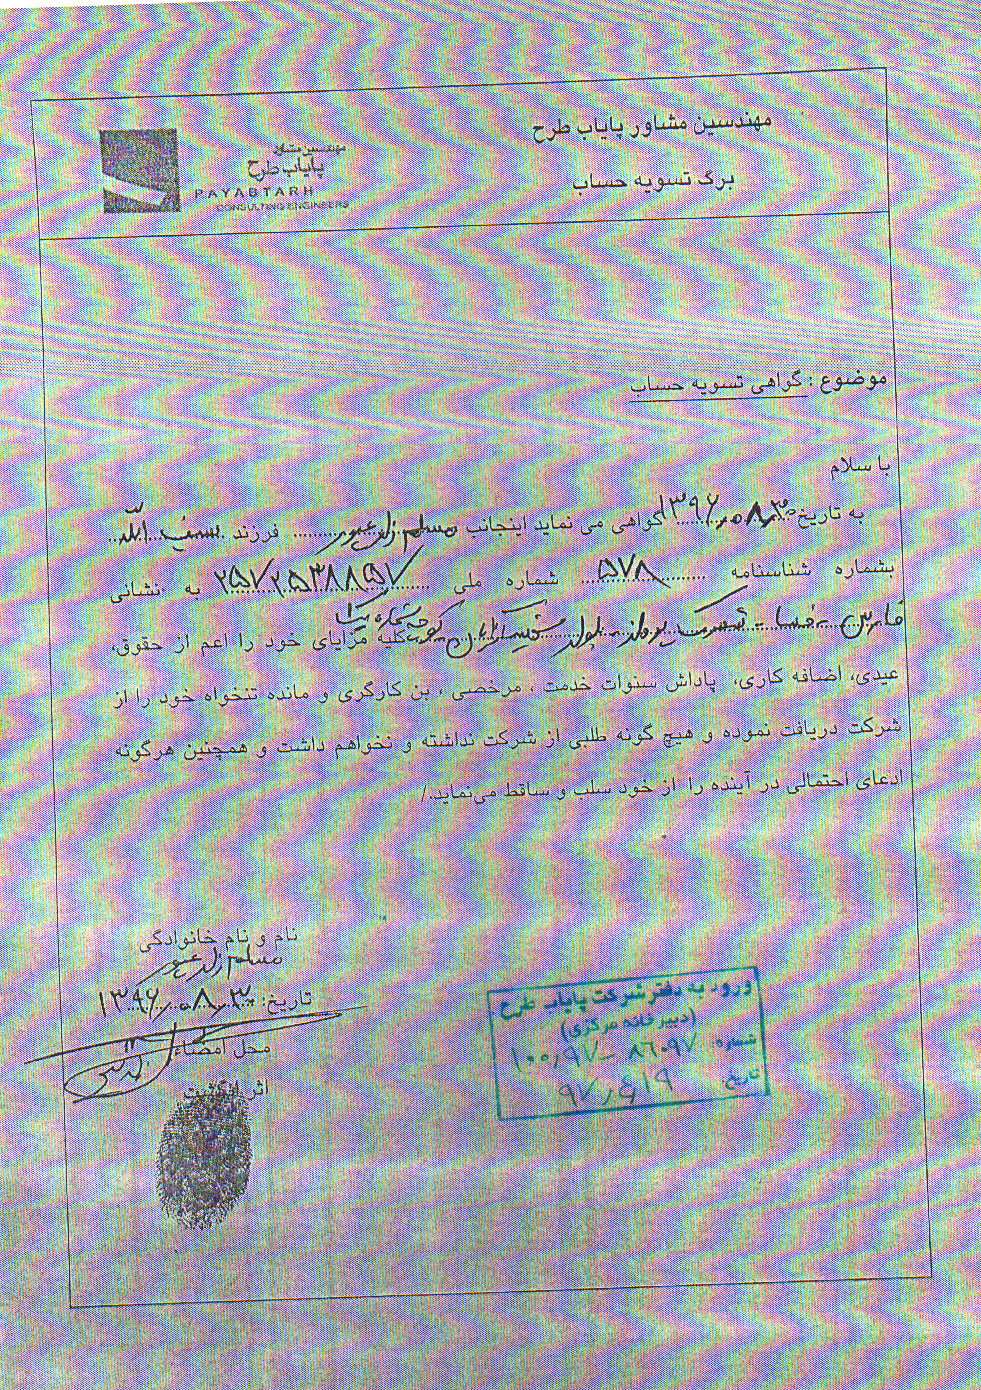 مهندسین مشاور پایاب طرح
برگ تسویه حساب
مهندسین مشاور
پایاب طرح
PAYABTARH
CONSULTING ENGINEERS
موضوع : گواهی تسویه حساب
با سلام
به تاریخ ۱۳۹۶/۰۸/۳۰ گواهی می نماید اینجانب مسلم فرزند
بشماره شناسنامه ۵۷۸ شماره ملی به نشانی
فارس کلیه مزایای خود را اعم از حقوق،
عیدی، اضافه کاری، پاداش سنوات خدمت ، مرخصی ، بن کارگری و مانده تنخواه خود را از
شرکت دریافت نموده و هیچ گونه طلبی از شرکت نداشته و نخواهم داشت و همچنین هرگونه
ادعای احتمالی در آینده را از خود سلب و ساقط می‌نماید./
نام و نام خانوادگی
مسلم
تاریخ: ۱۳۹۶/۰۸/۳۰
محل امضاء
اثر انگشت
ورود به دفتر شرکت پایاب طرح
(دبیرخانه مرکزی)
شماره ۱۰۰/۹۷ – ۸۶۰۹۷
تاریخ ۹۷/۴/۱۹